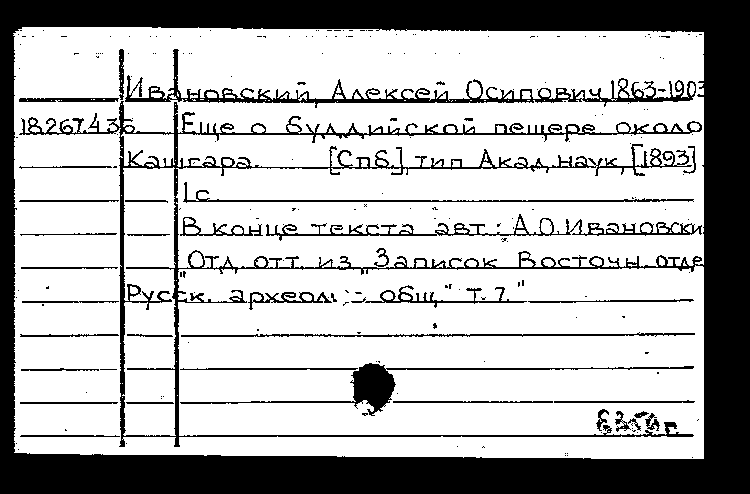 Ивановский, Алексей Осипович, 1863-1903
18.267.4.35. Еще о буддийской пещере около
Кашгара. [Спб.], тип Акад. наук, [1893].
1с.
В конце текста авт.: А.О.Ивановски
"Отд. отт. из „Записок Восточн. отде
Русск. археол. общ." т.7."